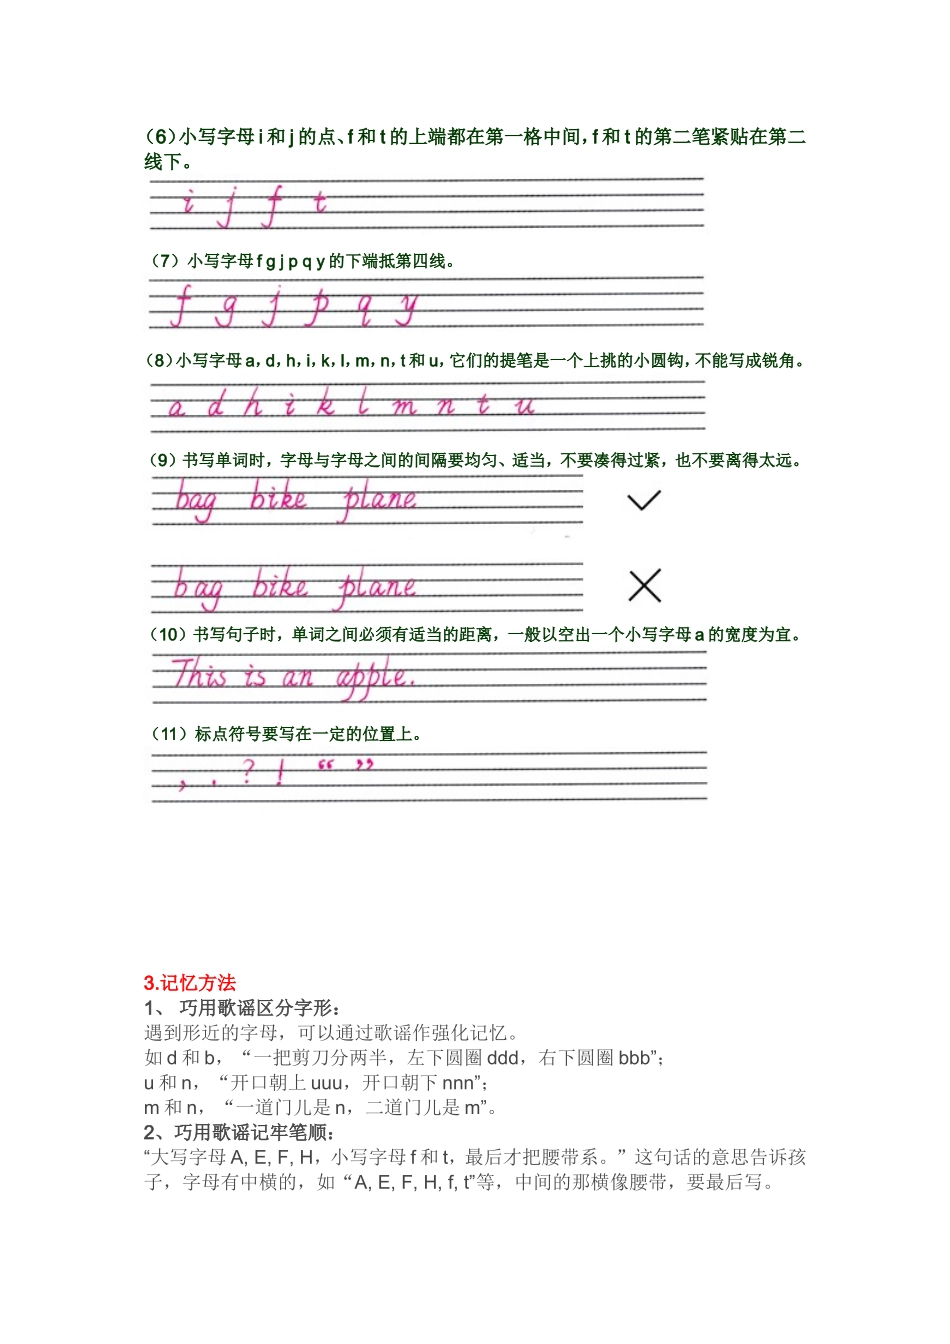 （6）小写字母 i 和 j 的点、f 和 t 的上端都在第一格中间，f 和 t 的第二笔紧贴在第二
线下。
i j f t
（7）小写字母 f g j p q y 的下端抵第四线。
f g j p q y
（8）小写字母 a，d，h，i，k，l，m，n，t 和 u，它们的提笔是一个上挑的小圆钩，不能写成锐角。
a d h i k l m n t u
（9）书写单词时，字母与字母之间的间隔要均匀、适当，不要凑得过紧，也不要离得太远。
bag bike plane
bag bike plane
（10）书写句子时，单词之间必须有适当的距离，一般以空出一个小写字母 a 的宽度为宜。
This is an apple.
（11）标点符号要写在一定的位置上。
, . ? ! “ ”
3.记忆方法
1、 巧用歌谣区分字形：
遇到形近的字母，可以通过歌谣作强化记忆。
如 d 和 b，“一把剪刀分两半，左下圆圈 ddd，右下圆圈 bbb”；
u 和 n，“开口朝上 uuu，开口朝下 nnn”；
m 和 n，“一道门儿是 n，二道门儿是 m”。
2、巧用歌谣记牢笔顺：
“大写字母 A, E, F, H，小写字母 f 和 t，最后才把腰带系。”这句话的意思告诉孩
子，字母有中横的，如“A, E, F, H, f, t”等，中间的那横像腰带，要最后写。